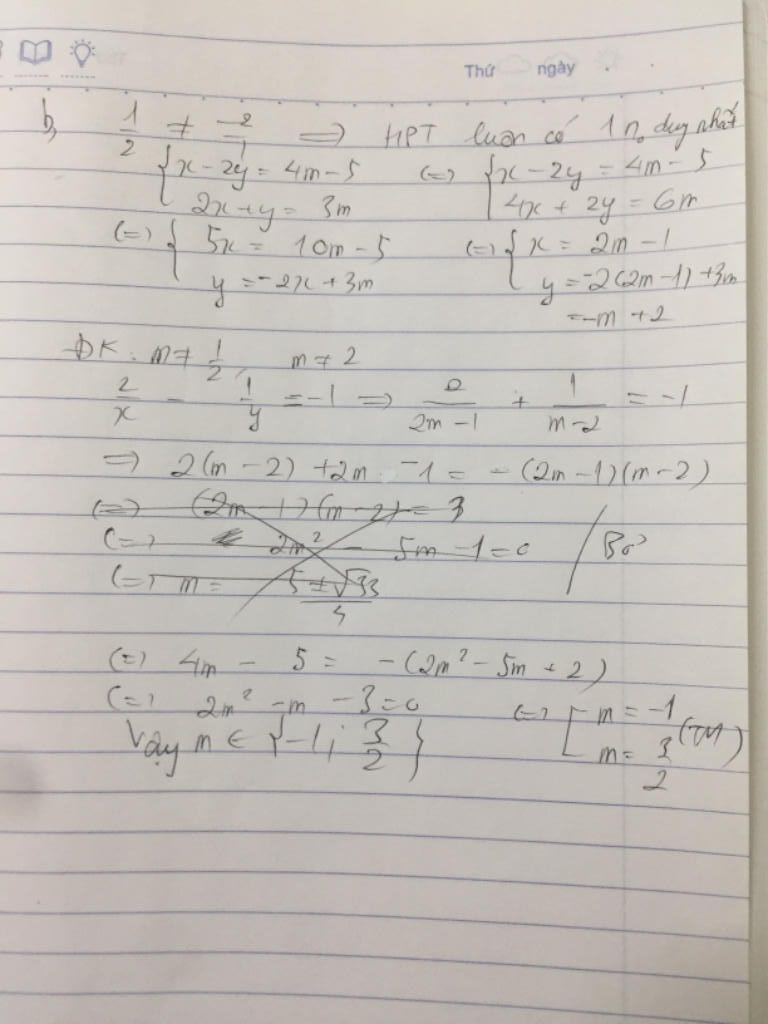 Thứ ngày
b, 1/2 ≠ -2/1 => HPT luôn có 1 n₀ duy nhất
{ x - 2y = 4m - 5 (=) { x - 2y = 4m - 5
2x + y = 3m 4x + 2y = 6m
(=) { 5x = 10m - 5 (=) { x = 2m - 1
y = -2x + 3m y = -2(2m - 1) + 3m
= -m + 2
ĐK : m ≠ 1/2, m ≠ 2
2/x - 1/y = -1 => 2/(2m - 1) + 1/(m - 2) = -1
=> 2(m - 2) + 2m - 1 = - (2m - 1)(m - 2)
(=) (2m - 1)(m - 2) = 3
(=) 2m² - 5m - 1 = 0 / Bỏ
(=) m = (5 ± √33)/4
(=) 4m - 5 = - (2m² - 5m + 2)
(=) 2m² - m - 3 = 0 (=) [ m = -1
Vậy m ∈ {-1; 3/2} m = 3/2 (TM)